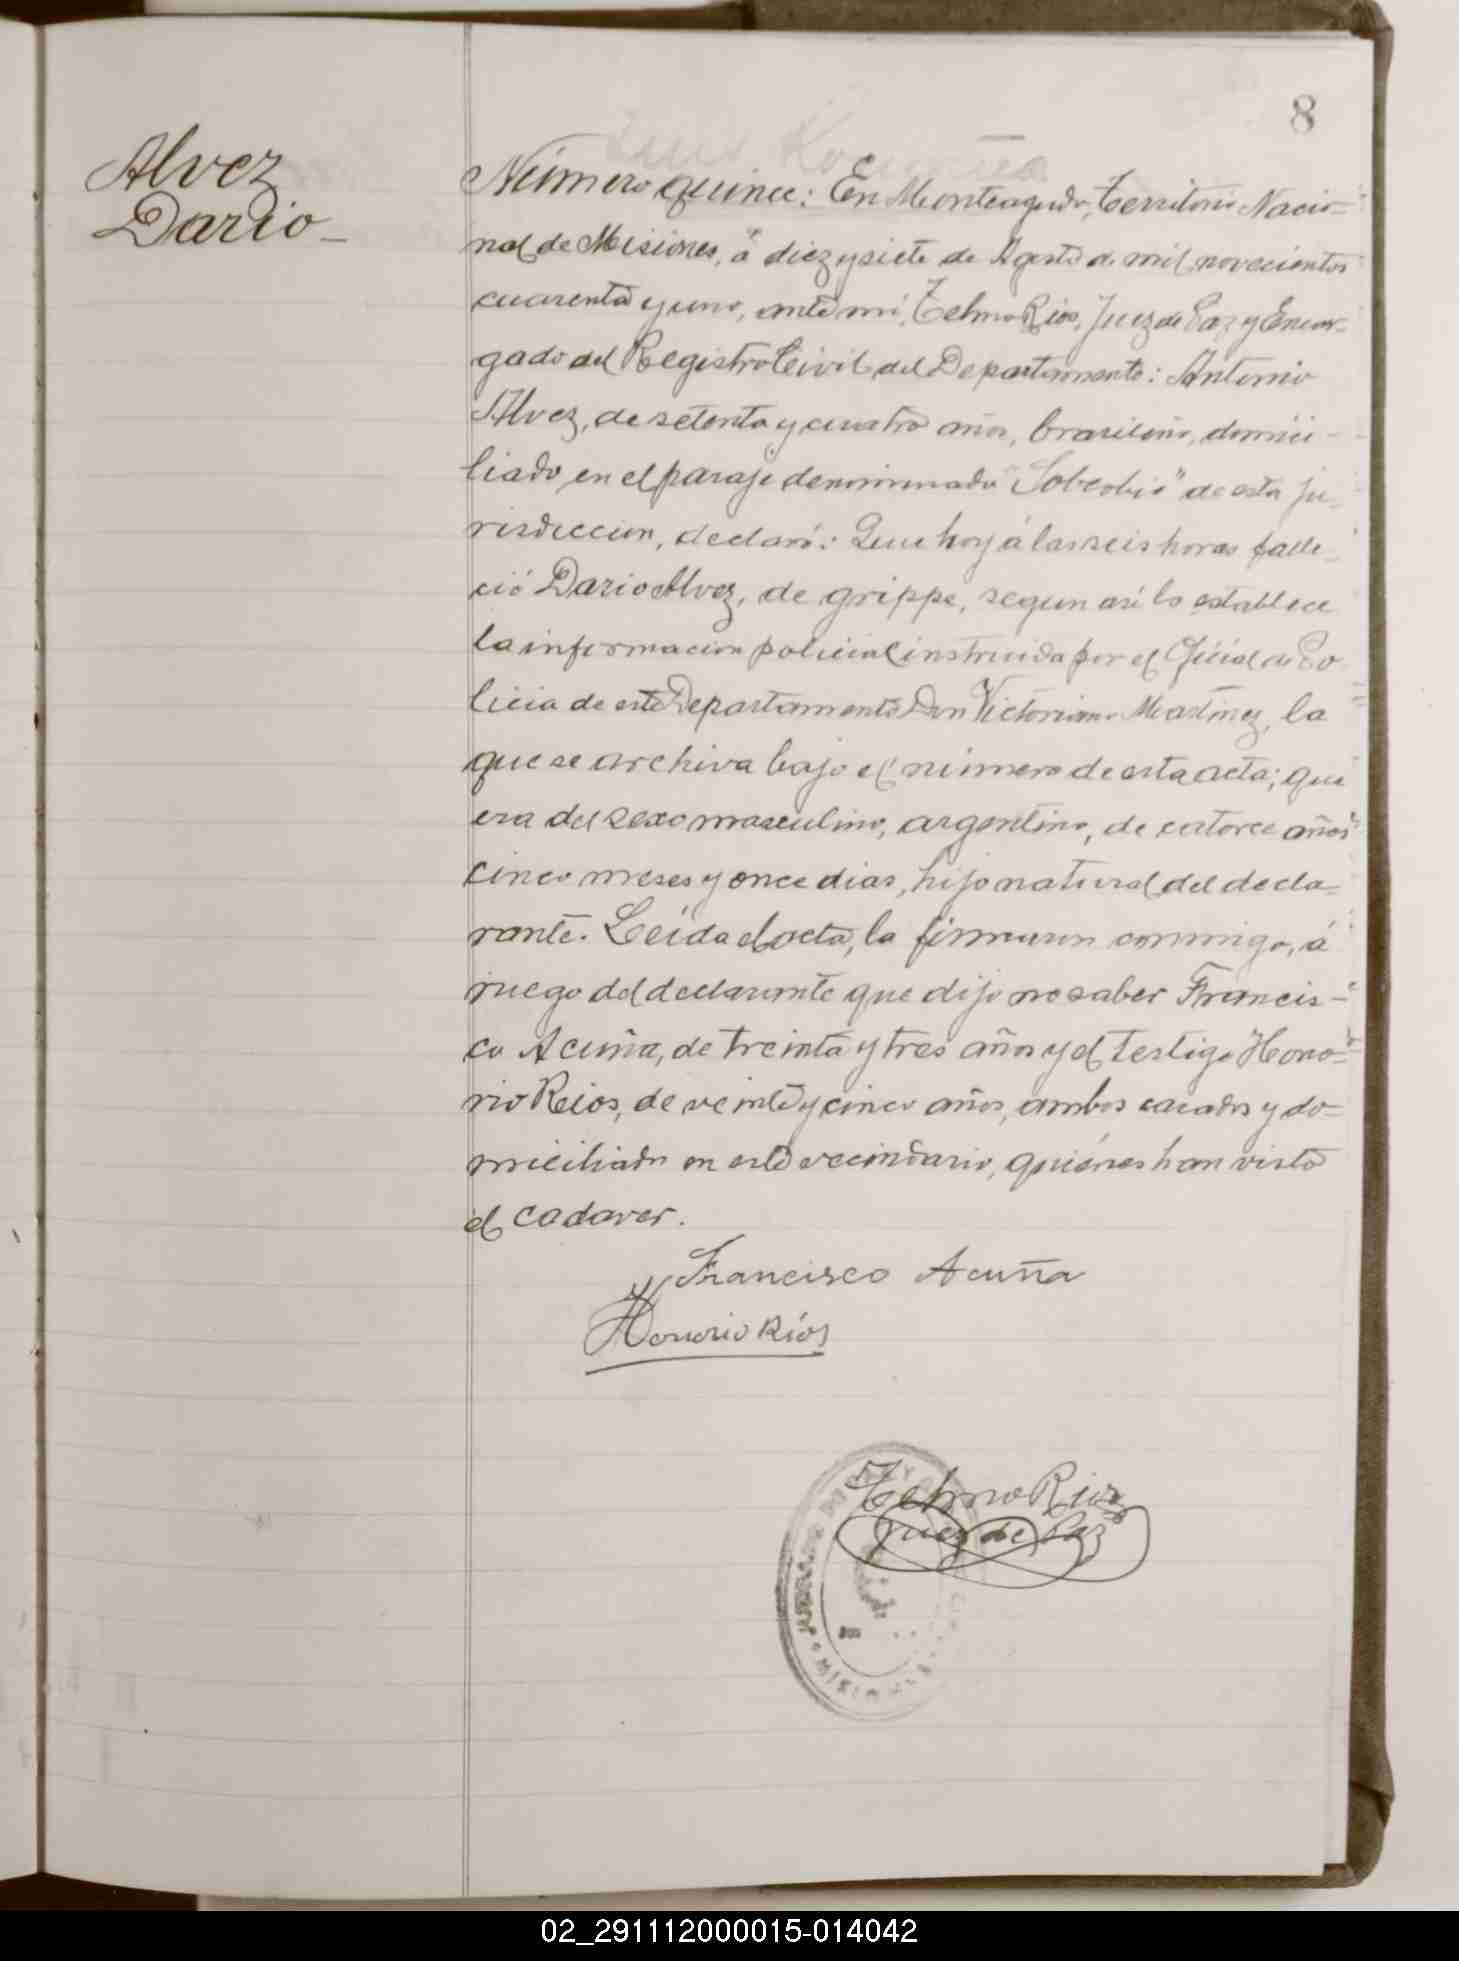 8
Alvez
Dario_
Número quince: En Monteagudo, Territorio Nacio-
nal de Misiones, á diez y siete de Agosto de mil novecientos
cuarenta y uno, ante mi, Telmo Rios, Juez de Paz y Encar-
gado del Registro Civil del Departamento: Antonio
Alvez, de setenta y cuatro años, brasileño, domici-
liado en el paraje denominado "Soberbio" de esta ju-
risdiccion, declaró: Que hoy á las seis horas falle-
ció Dario Alvez, de grippe, segun asi lo establece
la informacion policial instruida por el Oficial de Po-
licia de este Departamento Don Victoriano Martinez, la
que se archiva bajo el número de esta acta; que
era del sexo masculino, argentino, de catorce años
cinco meses y once dias, hijo natural del decla-
rante. Leída el acta, la firmaron conmigo, á
ruego del declarante que dijo no saber Francis-
co Acuña, de treinta y tres años y el testigo Hono-
rio Rios, de veinte y cinco años, ambos casados y do-
miciliados en este vecindario, quiénes han visto
el cadaver.
Francisco Acuña
Honorio Ríos
Telmo Rios
Juez de Paz
JUZGADO DE PAZ Y
02_291112000015-014042